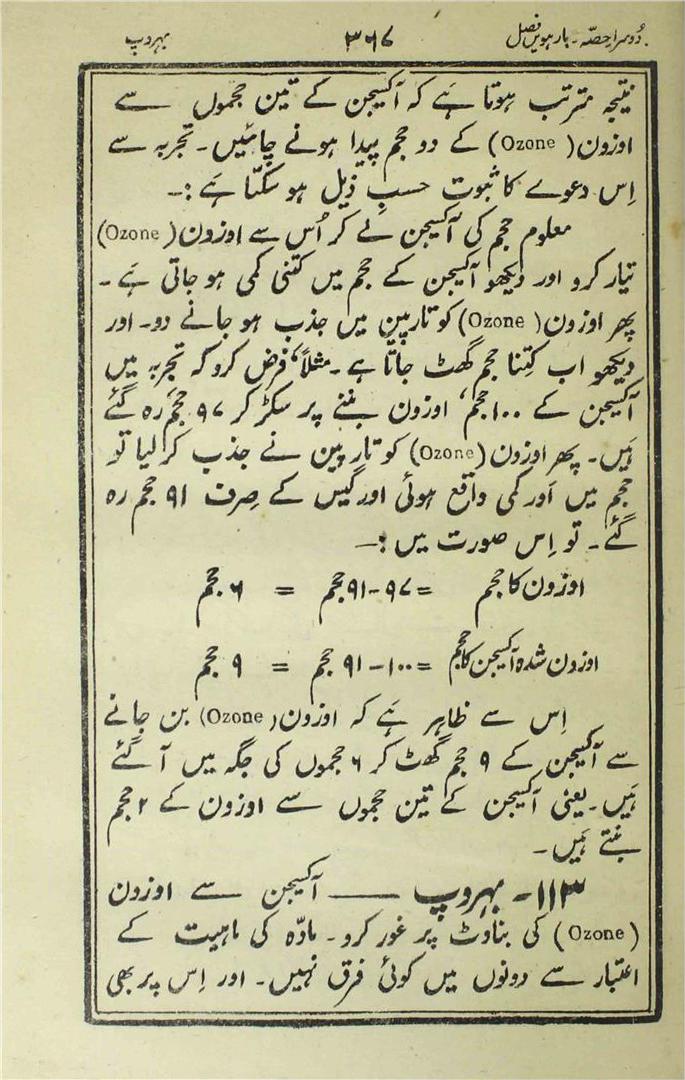 دُوسرا حصّہ۔ بارھویں فصل ۳۶۷ بہروپ
نتیجہ مترتب ہوتا ہَے کہ آکسیجن کے تین حجموں سے
اوزون (Ozone) کے دو حجم پیدا ہونے چاہئیں۔ تجربہ سے
اِس دعوے کا ثبوت حسبِ ذیل ہو سکتا ہَے :۔
معلوم حجم کی آکسیجن لے کر اُس سے اوزون (Ozone)
تیار کرو اور دیکھو آکسیجن کے حجم میں کتنی کمی ہو جاتی ہَے ۔
پھر اوزون (Ozone) کو تارپین میں جذب ہو جانے دو۔ اور
دیکھو اب کِتنا حجم گھٹ جاتا ہے۔ مثلاً، فرض کرو کہ تجربہ میں
آکسیجن کے ۱۰۰ حجم، اوزون بننے پر سکڑ کر ۹۷ حجم رہ گئے
ہَیں۔ پھر اوزون (Ozone) کو تارپین نے جذب کر لیا تو
حجم میں اَور کمی واقع ہوئی اور گیس کے صِرف ۹۱ حجم رہ
گئے ۔ تو اِس صورت میں :۔
اوزون کا حجم = ۹۷ - ۹۱ حجم = ۶ حجم
اوزون شدہ آکسیجن کا حجم = ۱۰۰ - ۹۱ حجم = ۹ حجم
اِس سے ظاہر ہَے کہ اوزون (Ozone) بن جانے
سے آکسیجن کے ۹ حجم گھٹ کر ۶ حجموں کی جگہ میں آ گئے
ہَیں۔ یعنی آکسیجن کے تین حجموں سے اوزون کے ۲ حجم
بنتے ہَیں۔
۱۱۳۔ بہروپ —— آکسیجن سے اوزون
(Ozone) کی بناوٹ پر غور کرو۔ مادّہ کی ماہیت کے
اعتبار سے دونوں میں کوئی فرق نہیں۔ اور اِس پر بھی